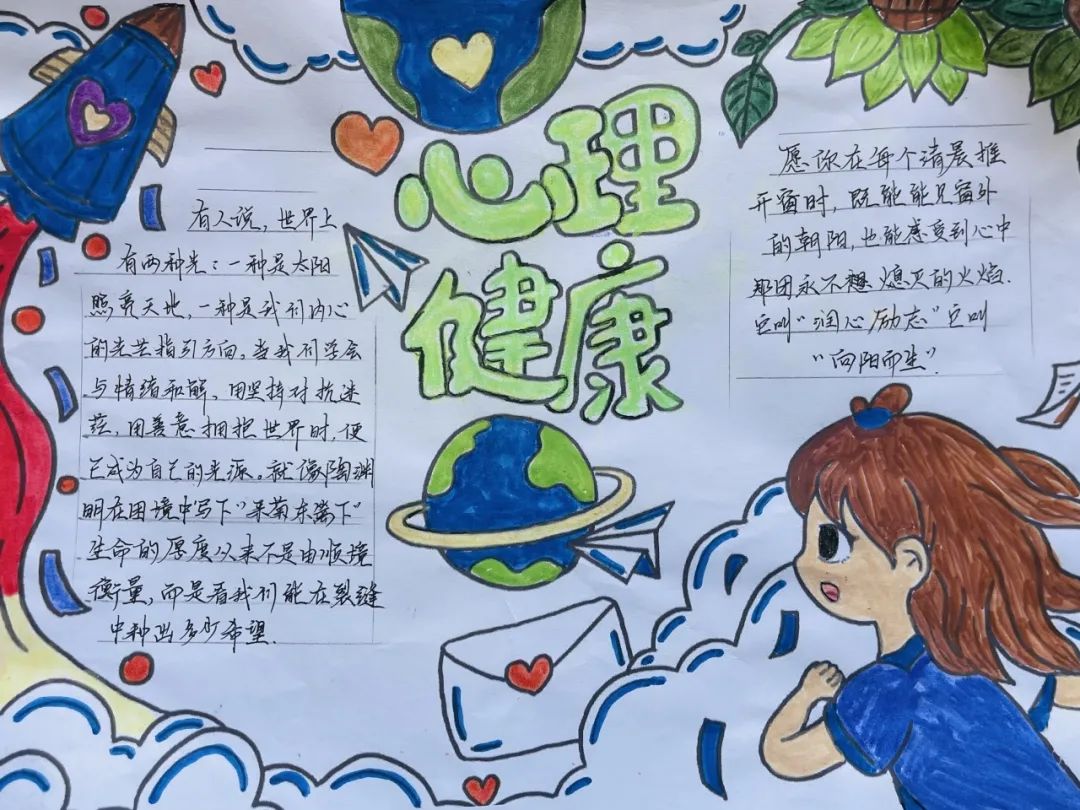 心理
健康
有人说，世界上
有两种光：一种是太阳
照亮天地，一种是我们内心
的光芒指引方向，当我们学会
与情绪和解，用坚持对抗迷
茫，用善意拥抱世界时，便
已成为自己的光源。就像陶渊
明在困境中写下“采菊东篱下”
生命的厚度从来不是由顺境
衡量，而是看我们能在裂缝
中种出多少希望.
愿你在每个清晨推
开窗时，既能能见窗外
的朝阳，也能感受到心中
那团永不想熄灭的火焰.
它叫“润心励志”它叫
“向阳而生”.